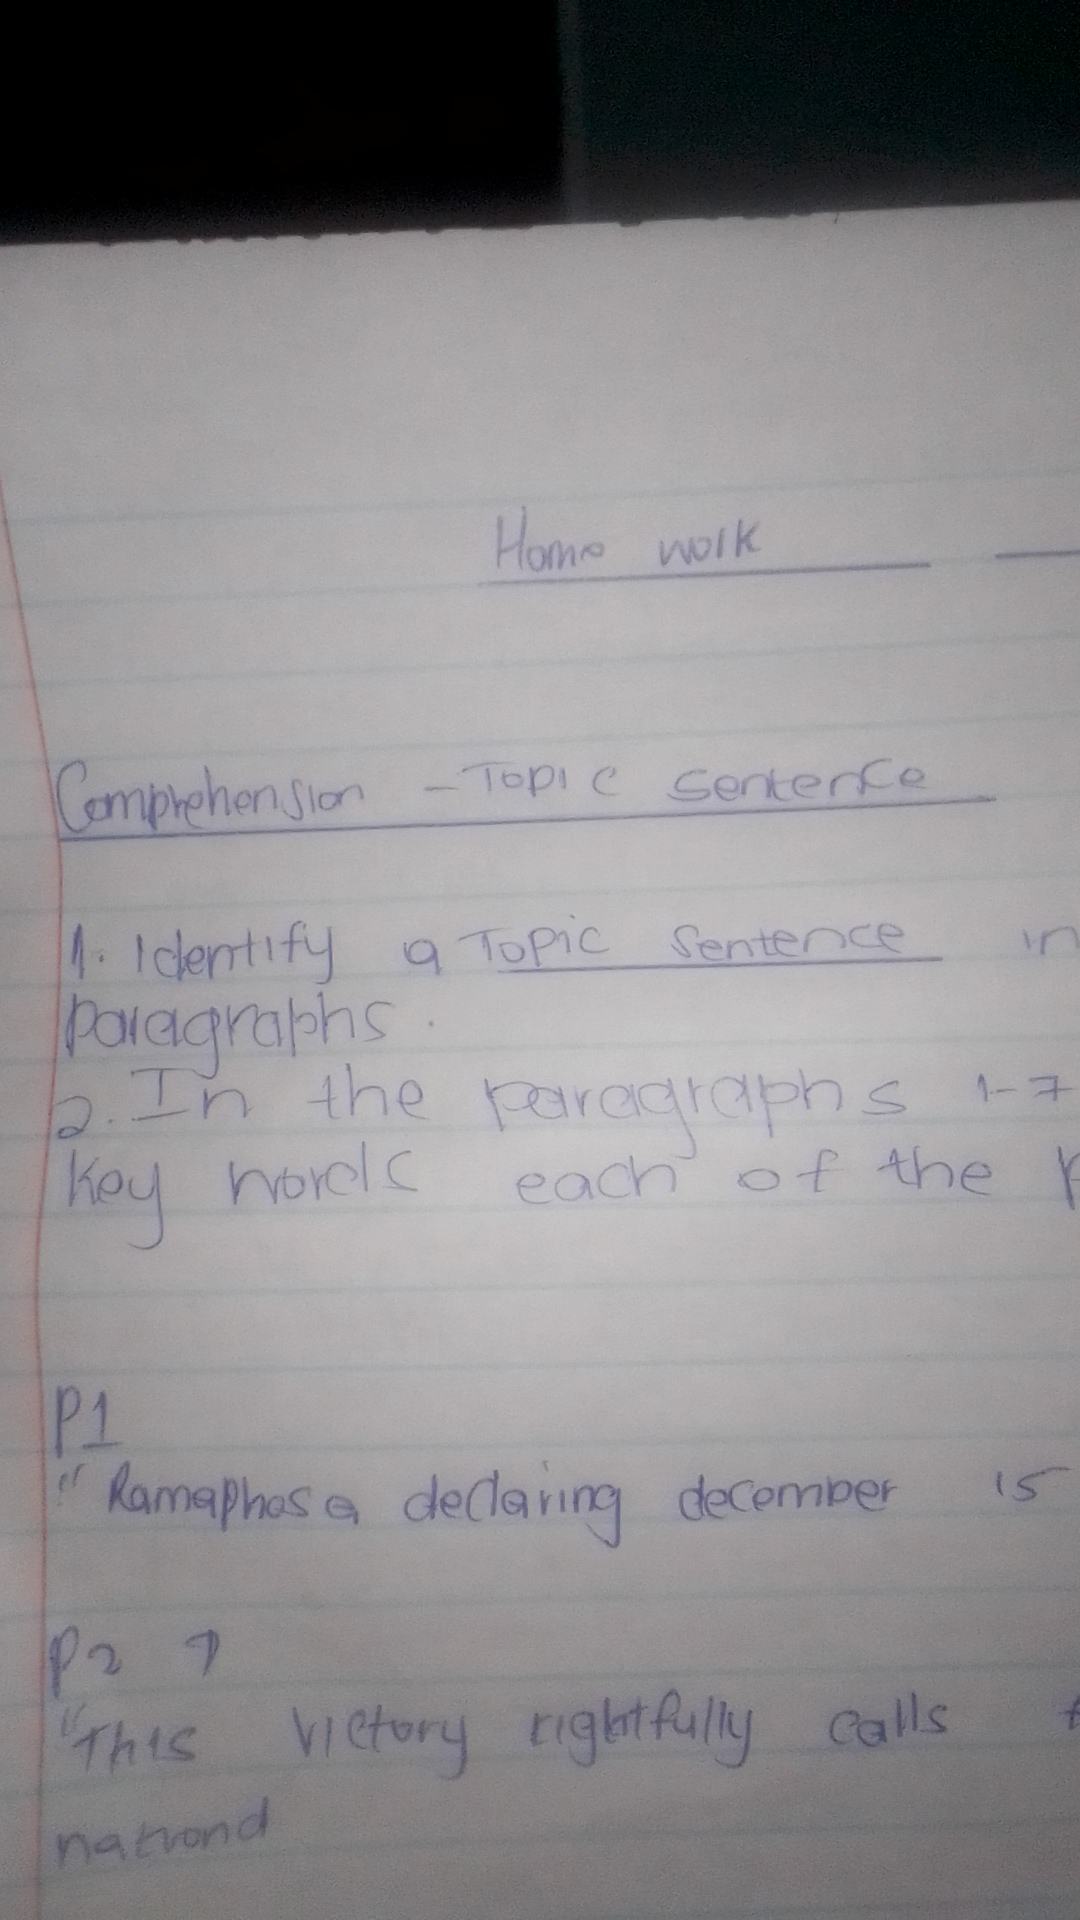 Home work
Comprehension - Topic Sentence
1. Identify a Topic Sentence in
paragraphs.
2. In the paragraphs 1-7
key words each of the
P1
"Ramaphosa declaring december 15
P2
"This victory rightfully calls